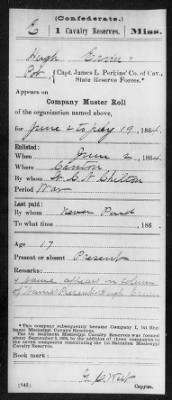 (Confederate.)
E 1 Cavalry Reserves, Miss.
Hugh Ervin
Pvt {Capt. James L. Perkins' Co. of Cav., State Reserve Forces.*
Appears on
Company Muster Roll
of the organization named above,
for June 2 to July 19, 1864.
Enlisted:
When June 2, 1864.
Where Canton
By whom Shelton
Period War
Last paid:
By whom Never Paid
To what time , 186 .
Age 17
Present or absent Present
Remarks:
name appears in column
of Names Present Hugh
*This company subsequently became Company
Mississippi Cavalry Reserves.
The 1st Regiment Mississippi Cavalry Reserves was formed
about September 2, 1864, by the addition of three companies to
the seven companies constituting the 1st Battalion Mississippi
Cavalry Reserves.
Book mark:
(642)
Copyist.